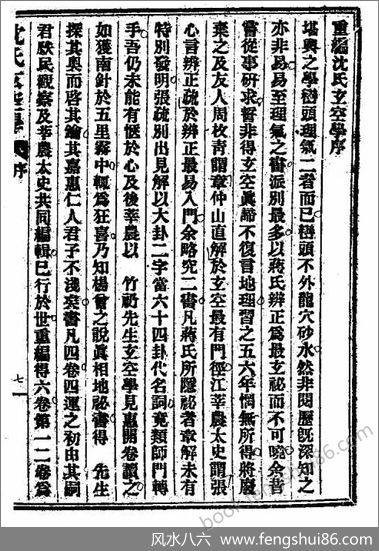 重編沈氏玄空學序
堪輿之學巒頭理氣二者而已巒頭不外龍穴砂水然非閱歷既深知之
亦非易易至理氣之書派別最多以蔣氏辨正爲最玄祕而不可曉余昔
嘗從事研求誓非得玄空眞諦不復言地理習之五六年惘無所得將廢
棄之及友人周枚青謂章仲山直解於玄空最有門徑江莘農太史謂張
心言辨正疏於辨正最易入門余略究二書凡蔣氏所隱祕者章解未有
特別發明張疏別出見解以大卦二字當六十四卦代名詞竟類師門轉
手吾仍未能有愜於心及後莘農以 竹礽先生玄空學見惠開卷讀之
如獲南針於五里霧中輒爲狂喜乃知楊曾之說眞相地祕書得 先生
探其奧而啓其鑰其嘉惠仁人君子不淺矣書凡四卷四運之初由其嗣
君瓞民觀察及莘農太史共同編輯已行於世重編得六卷第一二卷爲
沈氏玄空學 序
七
风水八六 www.fengshui86.com